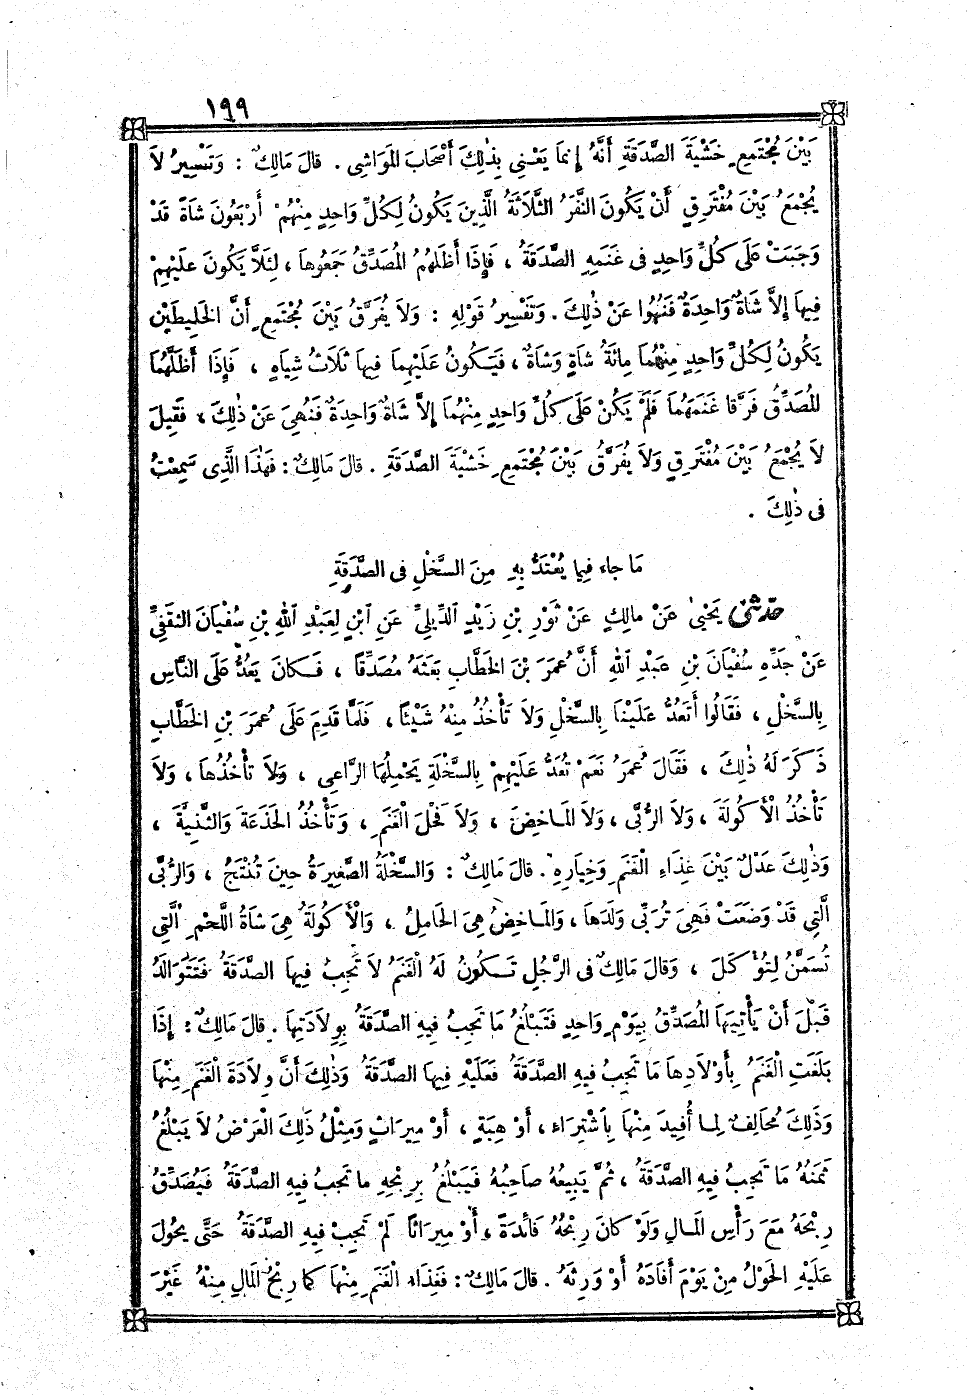 ١٩٩
بَيْنَ مُجْتَمِعٍ خَشْيَةَ الصَّدَقَةِ أَنَّهُ إِنَّمَا يَعْنِي بِذٰلِكَ أَصْحَابَ الْمَوَاشِي . قَالَ مَالِكٌ : وَتَفْسِيرُ لاَ
يُجْمَعُ بَيْنَ مُفْتَرِقٍ أَنْ يَكُونَ النَّفَرُ الثَّلَاثَةُ الَّذِينَ يَكُونُ لِكُلِّ وَاحِدٍ مِنْهُمْ أَرْبَعُونَ شَاةً قَدْ
وَجَبَتْ عَلَى كُلِّ وَاحِدٍ فِى غَنَمِهِ الصَّدَقَةُ ، فَإِذَا أَظَلَّهُمُ الْمُصَدِّقُ جَمَعُوهَا ، لِئَلاَّ يَكُونَ عَلَيْهِمْ
فِيهَا إِلاَّ شَاةٌ وَاحِدَةٌ فَنُهُوا عَنْ ذٰلِكَ . وَتَفْسِيرُ قَوْلِهِ : وَلاَ يُفَرَّقُ بَيْنَ مُجْتَمِعٍ أَنَّ الْخَلِيطَيْنِ
يَكُونُ لِكُلِّ وَاحِدٍ مِنْهُمَا مِائَةُ شَاةٍ وَشَاةٌ ، فَيَكُونُ عَلَيْهِمَا فِيهَا ثَلَاثُ شِيَاهٍ ، فَإِذَا أَظَلَّهُمَا
الْمُصَدِّقُ فَرَّقَا غَنَمَهُمَا فَلَمْ يَكُنْ عَلَى كُلِّ وَاحِدٍ مِنْهُمَا إِلاَّ شَاةٌ وَاحِدَةٌ فَنُهِىَ عَنْ ذٰلِكَ ، فَقِيلَ
لاَ يُجْمَعُ بَيْنَ مُفْتَرِقٍ وَلاَ يُفَرَّقُ بَيْنَ مُجْتَمِعٍ خَشْيَةَ الصَّدَقَةِ . قَالَ مَالِكٌ : فَهٰذَا الَّذِى سَمِعْتُ
فِى ذٰلِكَ .
مَا جَاءَ فِيمَا يُعْتَدُّ بِهِ مِنَ السَّخْلِ فِى الصَّدَقَةِ
حَدَّثَنِى يَحْيٰ عَنْ مَالِكٍ عَنْ ثَوْرِ بْنِ زَيْدٍ الدِّيلِيِّ عَنِ ابْنٍ لِعَبْدِ اللهِ بْنِ سُفْيَانَ الثَّقَفِيِّ
عَنْ جَدِّهِ سُفْيَانَ بْنِ عَبْدِ اللهِ أَنَّ عُمَرَ بْنَ الْخَطَّابِ بَعَثَهُ مُصَدِّقًا ، فَكَانَ يَعُدُّ عَلَى النَّاسِ
بِالسَّخْلِ ، فَقَالُوا أَتَعُدُّ عَلَيْنَا بِالسَّخْلِ وَلاَ تَأْخُذُ مِنْهُ شَيْئًا ، فَلَمَّا قَدِمَ عَلَى عُمَرَ بْنِ الْخَطَّابِ
ذَكَرَ لَهُ ذٰلِكَ ، فَقَالَ عُمَرُ نَعَمْ تَعُدُّ عَلَيْهِمْ بِالسَّخْلَةِ يَحْمِلُهَا الرَّاعِي ، وَلاَ تَأْخُذُهَا ، وَلاَ
تَأْخُذُ الْأَكُولَةَ ، وَلاَ الرُّبَّى ، وَلاَ الْمَاخِضَ ، وَلاَ فَحْلَ الْغَنَمِ ، وَتَأْخُذُ الْجَذَعَةَ وَالثَّنِيَّةَ ،
وَذٰلِكَ عَدْلٌ بَيْنَ غِذَاءِ الْغَنَمِ وَخِيَارِهِ . قَالَ مَالِكٌ : وَالسَّخْلَةُ الصَّغِيرَةُ حِينَ تُنْتَجُ ، وَالرُّبَّى
الَّتِي قَدْ وَضَعَتْ فَهِيَ تُرَبِّى وَلَدَهَا ، وَالْمَاخِضُ هِيَ الْحَامِلُ ، وَالْأَكُولَةُ هِيَ شَاةُ اللَّحْمِ الَّتِي
تُسَمَّنُ لِتُؤْكَلَ ، وَقَالَ مَالِكٌ فِى الرَّجُلِ تَكُونُ لَهُ الْغَنَمُ لاَ تَجِبُ فِيهَا الصَّدَقَةُ فَتَتَوَالَدُ
قَبْلَ أَنْ يَأْتِيَهَا الْمُصَدِّقُ بِيَوْمٍ وَاحِدٍ فَتَبْلُغُ مَا تَجِبُ فِيهِ الصَّدَقَةُ بِوِلَادَتِهَا . قَالَ مَالِكٌ : إِذَا
بَلَغَتِ الْغَنَمُ بِأَوْلَادِهَا مَا تَجِبُ فِيهِ الصَّدَقَةُ فَعَلَيْهِ فِيهَا الصَّدَقَةُ وَذٰلِكَ أَنَّ وِلَادَةَ الْغَنَمِ مِنْهَا
وَذٰلِكَ مُخَالِفٌ لِمَا أُفِيدَ مِنْهَا بِاشْتِرَاءٍ ، أَوْ هِبَةٍ ، أَوْ مِيرَاثٍ وَمِثْلُ ذٰلِكَ الْعَرْضُ لاَ يَبْلُغُ
ثَمَنُهُ مَا تَجِبُ فِيهِ الصَّدَقَةُ ، ثُمَّ يَبِيعُهُ صَاحِبُهُ فَيَبْلُغُ بِرِبْحِهِ مَا تَجِبُ فِيهِ الصَّدَقَةُ فَيُصَدِّقُ
رِبْحَهُ مَعَ رَأْسِ الْمَالِ وَلَوْ كَانَ رِبْحُهُ فَائِدَةً ، أَوْ مِيرَاثًا لَمْ تَجِبْ فِيهِ الصَّدَقَةُ حَتَّى يَحُولَ
عَلَيْهِ الْحَوْلُ مِنْ يَوْمَ أَفَادَهُ أَوْ وَرِثَهُ . قَالَ مَالِكٌ : فَغِذَاءُ الْغَنَمِ مِنْهَا كَمَا رِبْحُ الْمَالِ مِنْهُ غَيْرَ